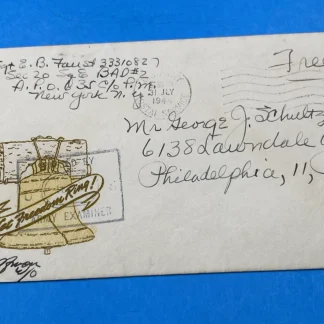 Sgt E. B. Faust 33310827
Sec 20 Sp S BAD#2
A.P.O. 635 C/o P.M.
New York N.Y.
31 JLY
Free
Mr George J. Schultz
6138 Lawndale
Philadelphia, 11,
Let Freedom Ring!
BY
EXAMINER